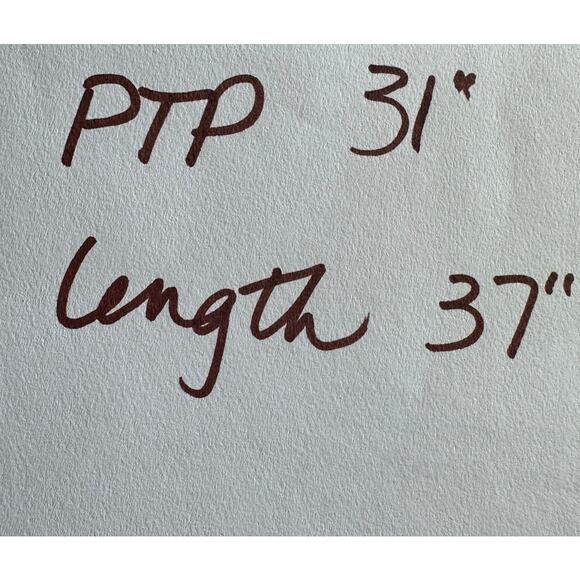 PTP 31"
length 37"